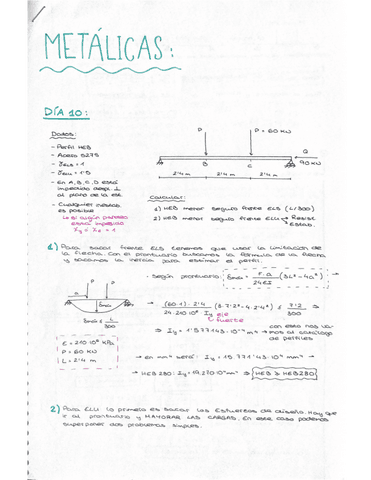 METÁLICAS:
DÍA 10:
Datos:
- Perfil HEB
- Acero S275
- γELS = 1
- γELU = 1'5
- En A, B, C, D está
impedido despl. ⊥
al plano de la est.
- Cualquier inestab.
es posible
Si algún pandeo
está impedido
P
P = 60 KN
Q
90 KN
B
C
2'4 m
2'4 m
2'4 m
Calcular:
1) HEB menor seguro frente ELS (L/300)
2) HEB menor seguro frente ELU
Resist.
Estab.
1) Para sacar frente ELS tenemos que usar la limitación de
la flecha. Con el prontuario buscamos la fórmula de la flecha
y sacamos la inercia para estimar el perfil.
- Según prontuario:
E = 210·10⁶ KPa
P = 60 KN
L = 2'4 m
7'2
300
Iy eje
fuerte
con esto nos va-
mos al catálogo
de perfiles
→ en mm⁴ será: Iy = 15.771'43·10⁴ mm⁴ →
→ HEB 280: Iy = 19.270·10⁴ mm⁴
HEB ≥ HEB280
2) Para ELU lo primero es sacar los esfuerzos de diseño. Hay que
ir al prontuario y MAYORAR LAS CARGAS. En este caso podemos
superponer dos problemas simples.